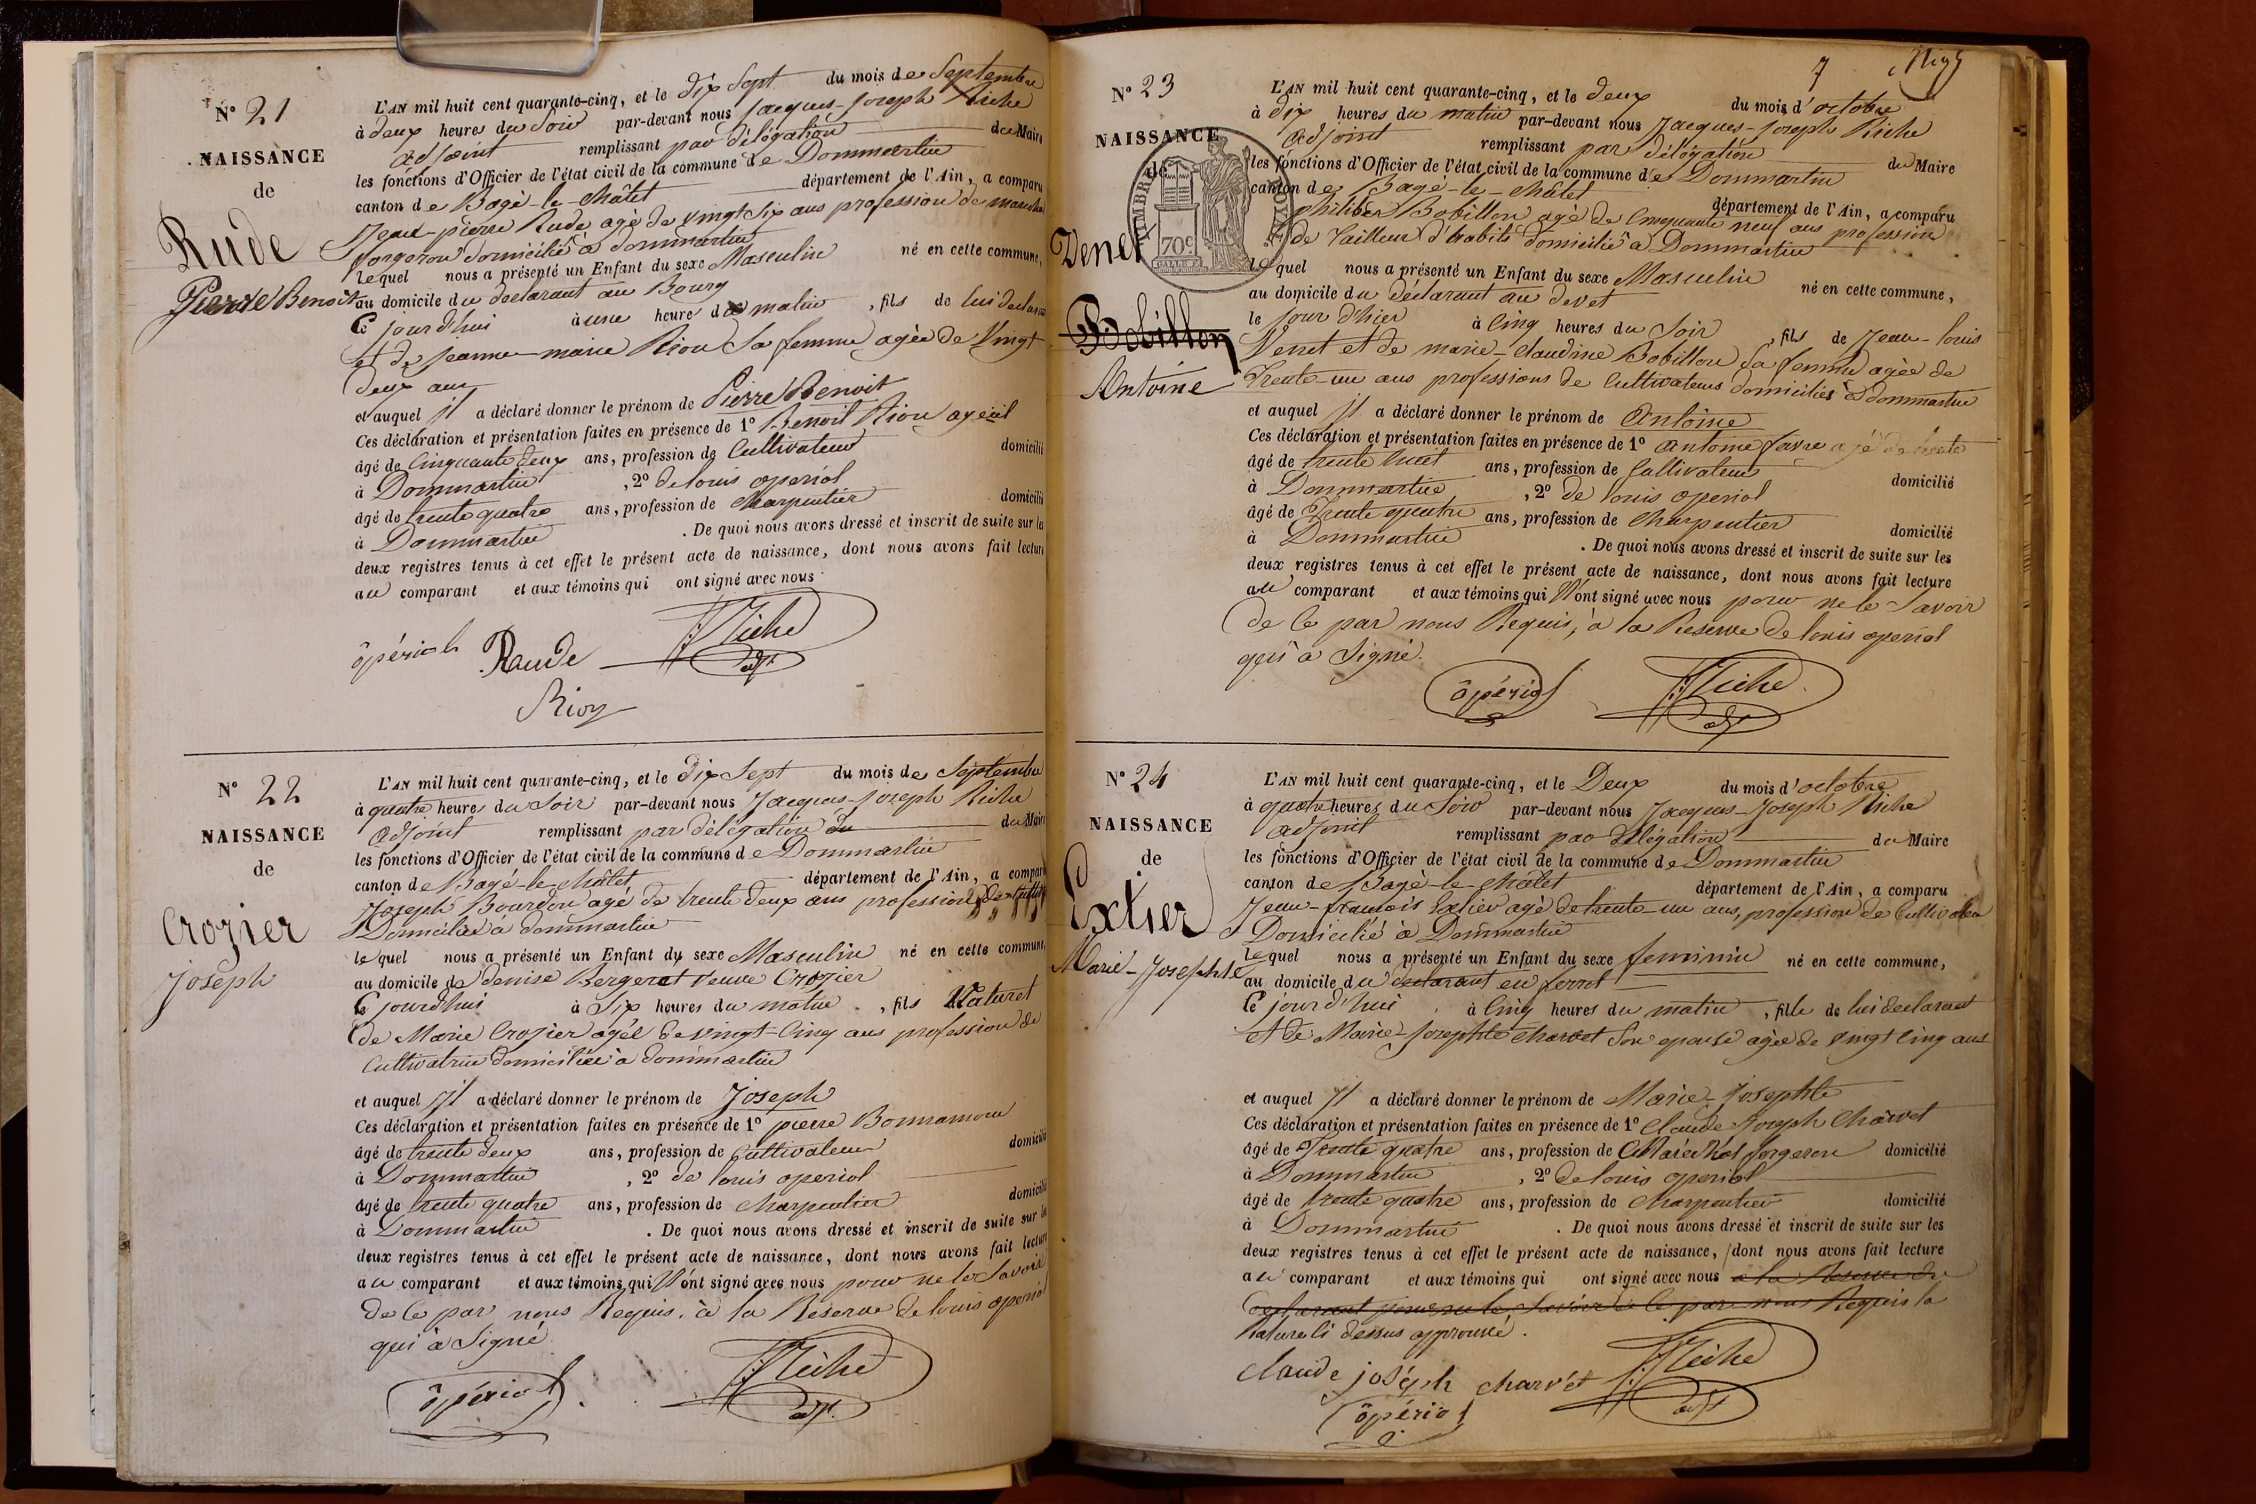 N° 21
NAISSANCE
de
Rude
Pierre Benoit
L'AN mil huit cent quarante-cinq, et le dix Sept du mois de Septembre
à deux heures du Soir par-devant nous Jacques-Joseph Riche
adjoint remplissant par délégation du Maire
les fonctions d'Officier de l'état civil de la commune de Dommartin
canton de Bagé-le-Châtel département de l'Ain, a comparu
Jean-pierre Rude agé de vingt six ans profession de
forgeron domicilié à dommartin
lequel nous a présenté un Enfant du sexe Masculin né en cette commune,
au domicile du declarant au Bourg
Ce jourd'hui à une heure du matin, fils de lui declarant
et de jeanne-marie Riou Sa femme agée de Vingt
deux ans
et auquel il a déclaré donner le prénom de Pierre Benoit
Ces déclaration et présentation faites en présence de 1° Benoit Riou
âgé de Cinquante deux ans, profession de Cultivateur domicilié
à Dommartin, 2° de louis operiol
âgé de trente quatre ans, profession de Charpentier domicilié
à Dommartin. De quoi nous avons dressé et inscrit de suite sur la
deux registres tenus à cet effet le présent acte de naissance, dont nous avons fait lecture
au comparant et aux témoins qui ont signé avec nous
ôpériol Raude JRiche
adjt
Rioy
N° 22
NAISSANCE
de
Crozier
joseph
L'AN mil huit cent quarante-cinq, et le dix Sept du mois de Septembre
à quatre heures du Soir par-devant nous Jacques-Joseph Riche
adjoint remplissant par délégation du Maire
les fonctions d'Officier de l'état civil de la commune de Dommartin
canton de Bagé-le-Châtel département de l'Ain, a comparu
Joseph Bourdon agé de trente deux ans profession de
Domicilié à dommartin
lequel nous a présenté un Enfant du sexe Masculin né en cette commune,
au domicile de denise Bergerat veuve Crozier
Ce jourd'hui à Six heures du matin, fils Naturel
de Marie Crozier agée de vingt-Cinq ans profession de
Cultivatrice domiciliée à dommartin
et auquel il a déclaré donner le prénom de Joseph
Ces déclaration et présentation faites en présence de 1° pierre Bonnamour
âgé de trente deux ans, profession de Cultivateur domicilié
à Dommartin, 2° de louis operiol
âgé de trente quatre ans, profession de Charpentier domicilié
à Dommartin. De quoi nous avons dressé et inscrit de suite sur les
deux registres tenus à cet effet le présent acte de naissance, dont nous avons fait lecture
au comparant et aux témoins qui N'ont signé avec nous pour ne le Savoir
de Ce par nous Requis, à la Réserve de louis operiol
qui à Signé
ôpériol JRiche
adjt
7
N° 23
NAISSANCE
de
TIMBRE ROYAL
70c
Venet
Bobillon
Antoine
L'AN mil huit cent quarante-cinq, et le deux du mois d'octobre
à dix heures du matin par-devant nous Jacques-Joseph Riche
adjoint remplissant par délégation du Maire
les fonctions d'Officier de l'état civil de la commune de Dommartin
canton de Bagé-le-Châtel département de l'Ain, a comparu
Philibert Bobillon agé de Cinquante neuf ans profession
de Tailleur d'habits domicilié à Dommartin
lequel nous a présenté un Enfant du sexe Masculin né en cette commune,
au domicile du déclarant au devet
le jour d'hier à Cinq heures du Soir, fils de Jean-louis
Venet et de marie-Claudine Bobillon Sa femme agée de
Trente-un ans professions de Cultivateurs domiciliés à dommartin
et auquel il a déclaré donner le prénom de Antoine
Ces déclaration et présentation faites en présence de 1° antoine favre agé de trente
âgé de trente huit ans, profession de Cultivateur domicilié
à Dommartin, 2° de louis operiol
âgé de Trente quatre ans, profession de Charpentier domicilié
à Dommartin. De quoi nous avons dressé et inscrit de suite sur les
deux registres tenus à cet effet le présent acte de naissance, dont nous avons fait lecture
au comparant et aux témoins qui N'ont signé avec nous pour ne le Savoir
de Ce par nous Requis, à la Reserve de louis operiol
qui à Signé.
ôpériol JRiche
adjt
N° 24
NAISSANCE
de
Extier
Marie-Josephte
L'AN mil huit cent quarante-cinq, et le Deux du mois d'octobre
à quatre heures du Soir par-devant nous Jacques-Joseph Riche
adjoint remplissant par délégation du Maire
les fonctions d'Officier de l'état civil de la commune de Dommartin
canton de Bagé-le-Châtel département de l'Ain, a comparu
Jean-françois Extier agé de trente-un ans, profession de Cultivateur
Domicilié à Dommartin
lequel nous a présenté un Enfant du sexe feminin né en cette commune,
au domicile du declarant en ferrot
Ce jourd'hui à Cinq heures du matin, fille de lui declarant
et de Marie-Josephte Charvet Son epouse agée de vingt Cinq ans
et auquel il a déclaré donner le prénom de Marie-Josephte
Ces déclaration et présentation faites en présence de 1° Claude Joseph Charvet
âgé de Trente quatre ans, profession de Maréchal forgeron domicilié
à Dommartin, 2° de louis operiol
âgé de trente quatre ans, profession de Charpentier domicilié
à Dommartin. De quoi nous avons dressé et inscrit de suite sur les
deux registres tenus à cet effet le présent acte de naissance, dont nous avons fait lecture
au comparant et aux témoins qui ont signé avec nous à la Reserve du
declarant pour ne le Savoir de Ce par nous Requis la
Rature Ci dessus approuvé.
claude joséph charvét JRiche
ôpériol adjt